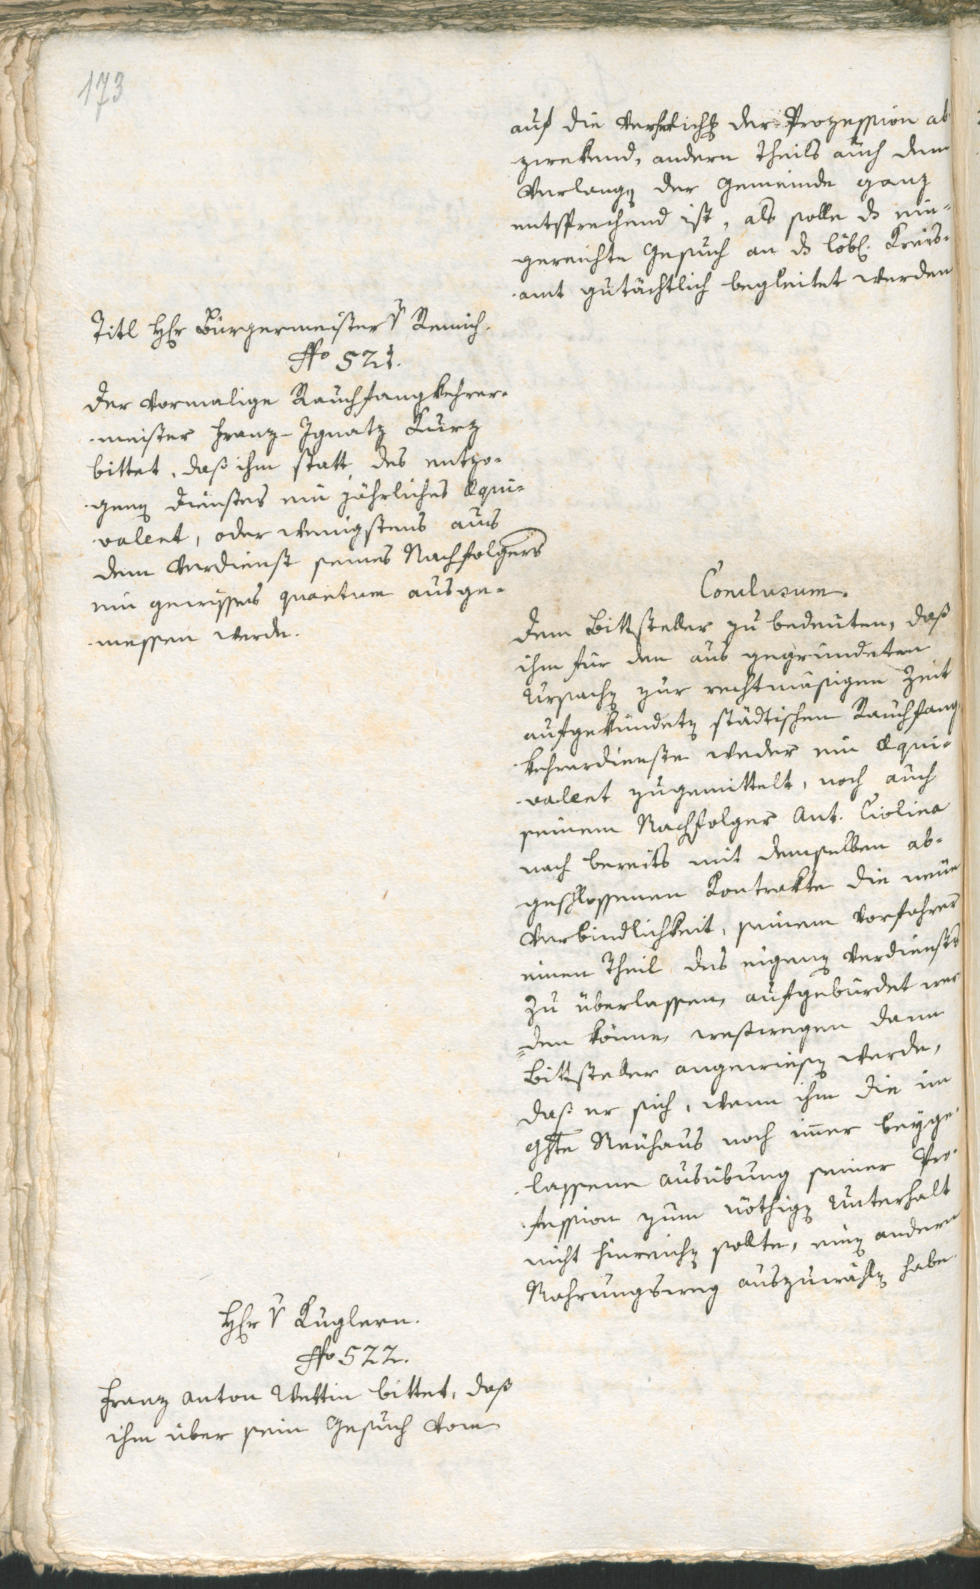 173
auf die Verherlichg der Prozession ab
zwekend, andern Theils auch dem
Verlangen der Gemeinde ganz
entsprechend ist, als solle ds ein-
gereichte Gesuch an ds löbl. Kreis-
amt gutächtlich begleitet werden
Titl Hr Bürgermeister v Remich.
No 521.
Der vormalige Rauchfangkehrer-
meister Franz Ignatz Kurz
bittet, daß ihm statt des entzo-
genen Dienstes ein jährliches Equi-
valent, oder wenigstens aus
dem Verdienst seines Nachfolgers
ein gewisses quantum ausge-
messen werde.
Conclusum.
Dem Bittsteller zu bedeuten, daß
ihm für den aus gegründeten
Ursachen zur rechtmäsigen Zeit
aufgekündeten städtischen Rauchfang
kehrerdienste weder ein Equi-
valent zugemittelt, noch auch
seinem Nachfolger Ant. Ciolina
nach bereits mit demselben ab-
geschlossenen Kontrakte die neue
Verbindlichkeit, seinem Vorfahrer
einen Theil des eigenen Verdienstes
zu überlassen, aufgebürdet wer
den könne, weswegen dann
Bittsteller angewiesen werde,
daß er sich, wenn ihm die im
Neuhaus noch immer beyge-
lassene Ausübung seiner Pro-
fession zum nöthigen Unterhalt
nicht hinreichen sollte, einen andern
Nahrungsweg auszuwählen habe
Hr v Kuglern.
No 522.
Franz Anton Wettin bittet, daß
ihm über sein Gesuch vom